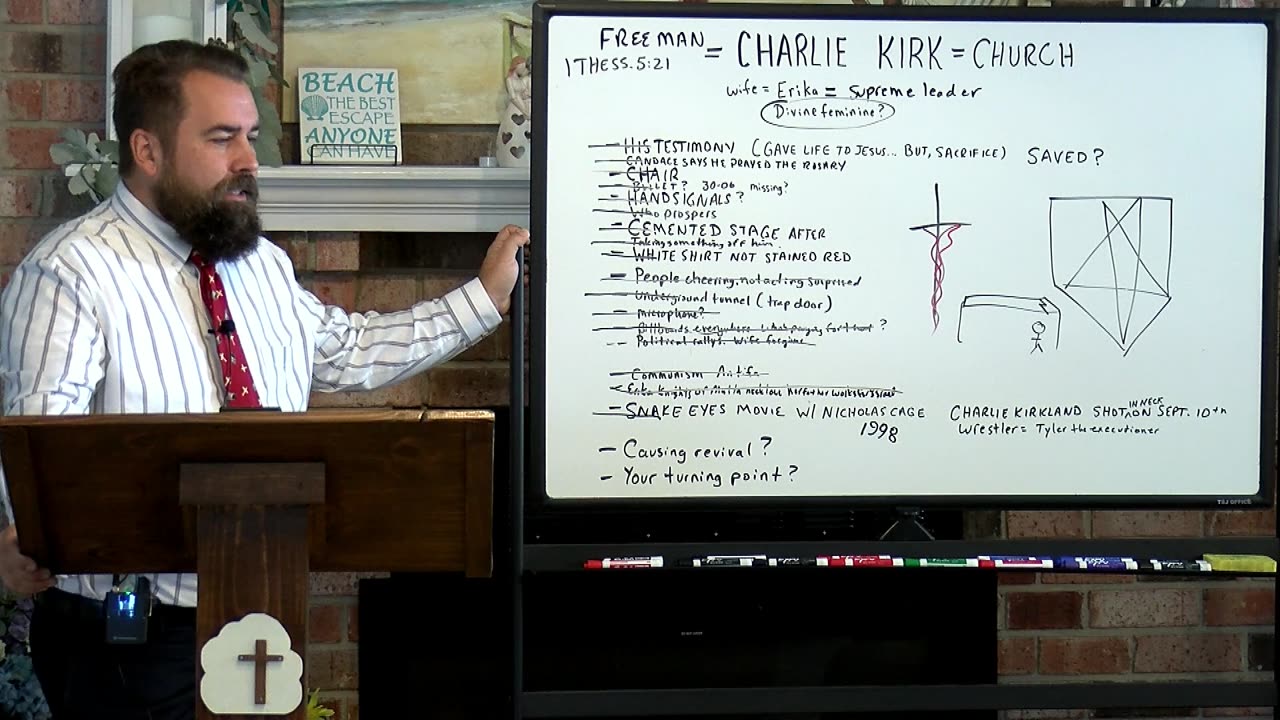 BEACH
THE BEST
ESCAPE
ANYONE
CAN HAVE
FREEMAN = CHARLIE KIRK = CHURCH
1 THESS. 5:21
wife = Erika = supreme leader
Divine feminine?
- HIS TESTIMONY (GAVE LIFE TO JESUS... BUT, SACRIFICE) SAVED?
CANDACE SAYS HE PRAYED THE ROSARY
- CHAIR
BULLET? 30-06 missing?
- HANDSIGNALS?
Who prospers
- CEMENTED STAGE AFTER
Taking something off him
- WHITE SHIRT NOT STAINED RED
- People cheering, not acting surprised
- Underground tunnel (trap door)
- microphone?
- Billboards everywhere ?
- Political rallys. Wife forgive
- Communism Antifa
- SNAKE EYES MOVIE W/ NICHOLAS CAGE
1998
CHARLIE KIRKLAND SHOT IN NECK ON SEPT. 10th
Wrestler = Tyler the executioner
- Causing revival?
- Your turning point?